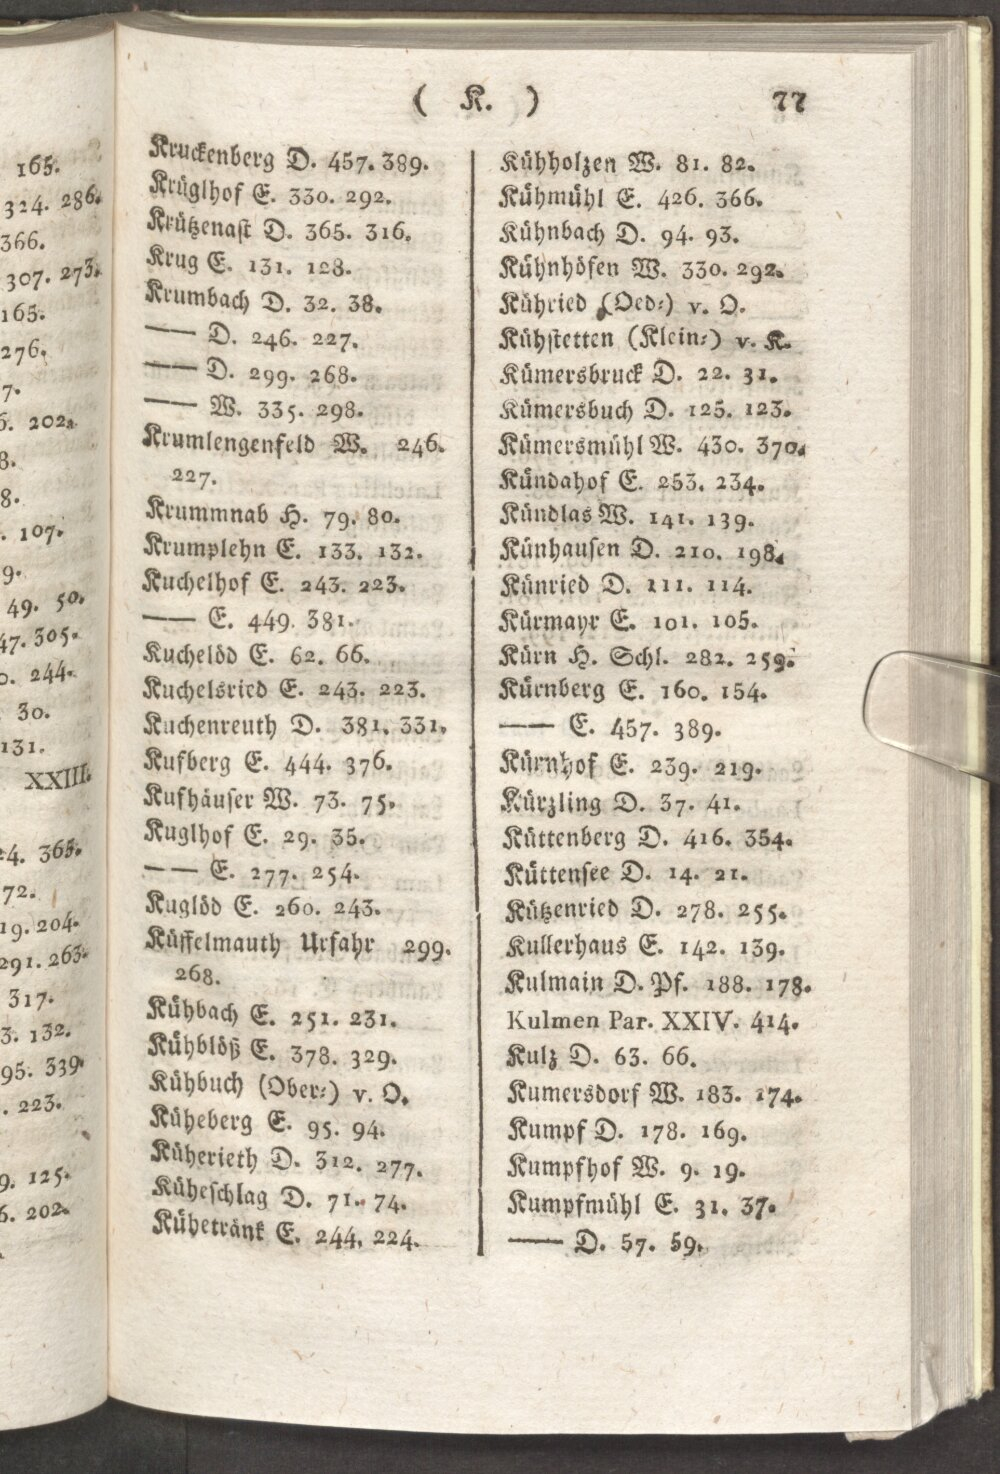 165.
324. 286.
366.
307. 273.
165.
276.
7.
6. 202.
8.
8.
. 107.
9.
49. 50.
47. 305.
0. 244.
30.
131.
XXIII.
24. 365.
72.
19. 204.
291. 263.
317.
3. 132.
95. 339.
. 223.
9. 125.
6. 202.
( K. ) 77
Kruckenberg D. 457. 389.
Krüglhof E. 330. 292.
Krützenast D. 365. 316.
Krug E. 131. 128.
Krumbach D. 32. 38.
—— D. 246. 227.
—— D. 299. 268.
—— W. 335. 298.
Krumlengenfeld W. 246.
227.
Krummnab H. 79. 80.
Krumplehn E. 133. 132.
Kuchelhof E. 243. 223.
—— E. 449. 381.
Kuchelöd E. 62. 66.
Kuchelsried E. 243. 223.
Kuchenreuth D. 381. 331.
Kufberg E. 444. 376.
Kufhäuser W. 73. 75.
Kuglhof E. 29. 35.
—— E. 277. 254.
Kuglöd E. 260. 243.
Küffelmauth Urfahr 299.
268.
Kühbach E. 251. 231.
Kühblöß E. 378. 329.
Kühbuch (Ober⸗) v. O.
Küheberg E. 95. 94.
Küherieth D. 312. 277.
Küheschlag D. 71. 74.
Kühetränk E. 244. 224.
Kühholzen W. 81. 82.
Kühmühl E. 426. 366.
Kühnbach D. 94. 93.
Kühnhöfen W. 330. 292.
Kühried (Oed⸗) v. O.
Kühstetten (Klein⸗) v. K.
Kümersbruck D. 22. 31.
Kümersbuch D. 125. 123.
Kümersmühl W. 430. 370.
Kündahof E. 253. 234.
Kündlas W. 141. 139.
Künhausen D. 210. 198.
Künried D. 111. 114.
Kürmayr E. 101. 105.
Kürn H. Schl. 282. 259.
Kürnberg E. 160. 154.
—— E. 457. 389.
Kürnhof E. 239. 219.
Kürzling D. 37. 41.
Küttenberg D. 416. 354.
Küttensee D. 14. 21.
Kützenried D. 278. 255.
Kullerhaus E. 142. 139.
Kulmain D. Pf. 188. 178.
Kulmen Par. XXIV. 414.
Kulz D. 63. 66.
Kumersdorf W. 183. 174.
Kumpf D. 178. 169.
Kumpfhof W. 9. 19.
Kumpfmühl E. 31. 37.
—— D. 57. 59.